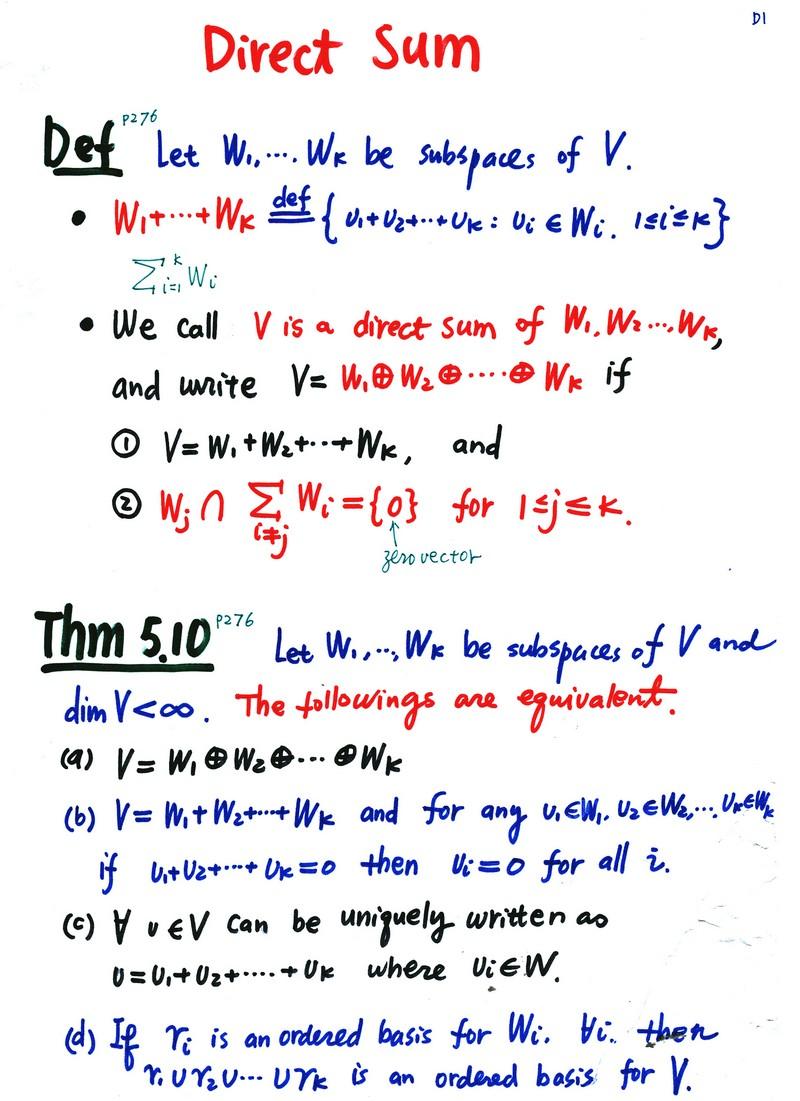 D1
Direct Sum
Def P276 Let W₁, ⋯, Wₖ be subspaces of V.
• W₁+⋯+Wₖ def= { v₁+v₂+⋯+vₖ : vᵢ ∈ Wᵢ. 1≤i≤k }
∑ᵢ₌₁ᵏ Wᵢ
• We call V is a direct sum of W₁, W₂ ⋯, Wₖ,
and write V= W₁⊕W₂⊕⋯⊕Wₖ if
① V=W₁+W₂+⋯+Wₖ, and
② Wⱼ ∩ ∑_{i≠j} Wᵢ = {0} for 1≤j≤k.
↑
zero vector
Thm 5.10 P276 Let W₁, ⋯, Wₖ be subspaces of V and
dim V<∞. The followings are equivalent.
(a) V= W₁⊕W₂⊕⋯⊕Wₖ
(b) V= W₁+W₂+⋯+Wₖ and for any v₁∈W₁, v₂∈W₂, ⋯, vₖ∈Wₖ
if v₁+v₂+⋯+vₖ=0 then vᵢ=0 for all i.
(c) ∀ v∈V can be uniquely written as
v=v₁+v₂+⋯+vₖ where vᵢ∈W.
(d) If γᵢ is an ordered basis for Wᵢ. ∀i. then
γ₁∪γ₂∪⋯∪γₖ is an ordered basis for V.